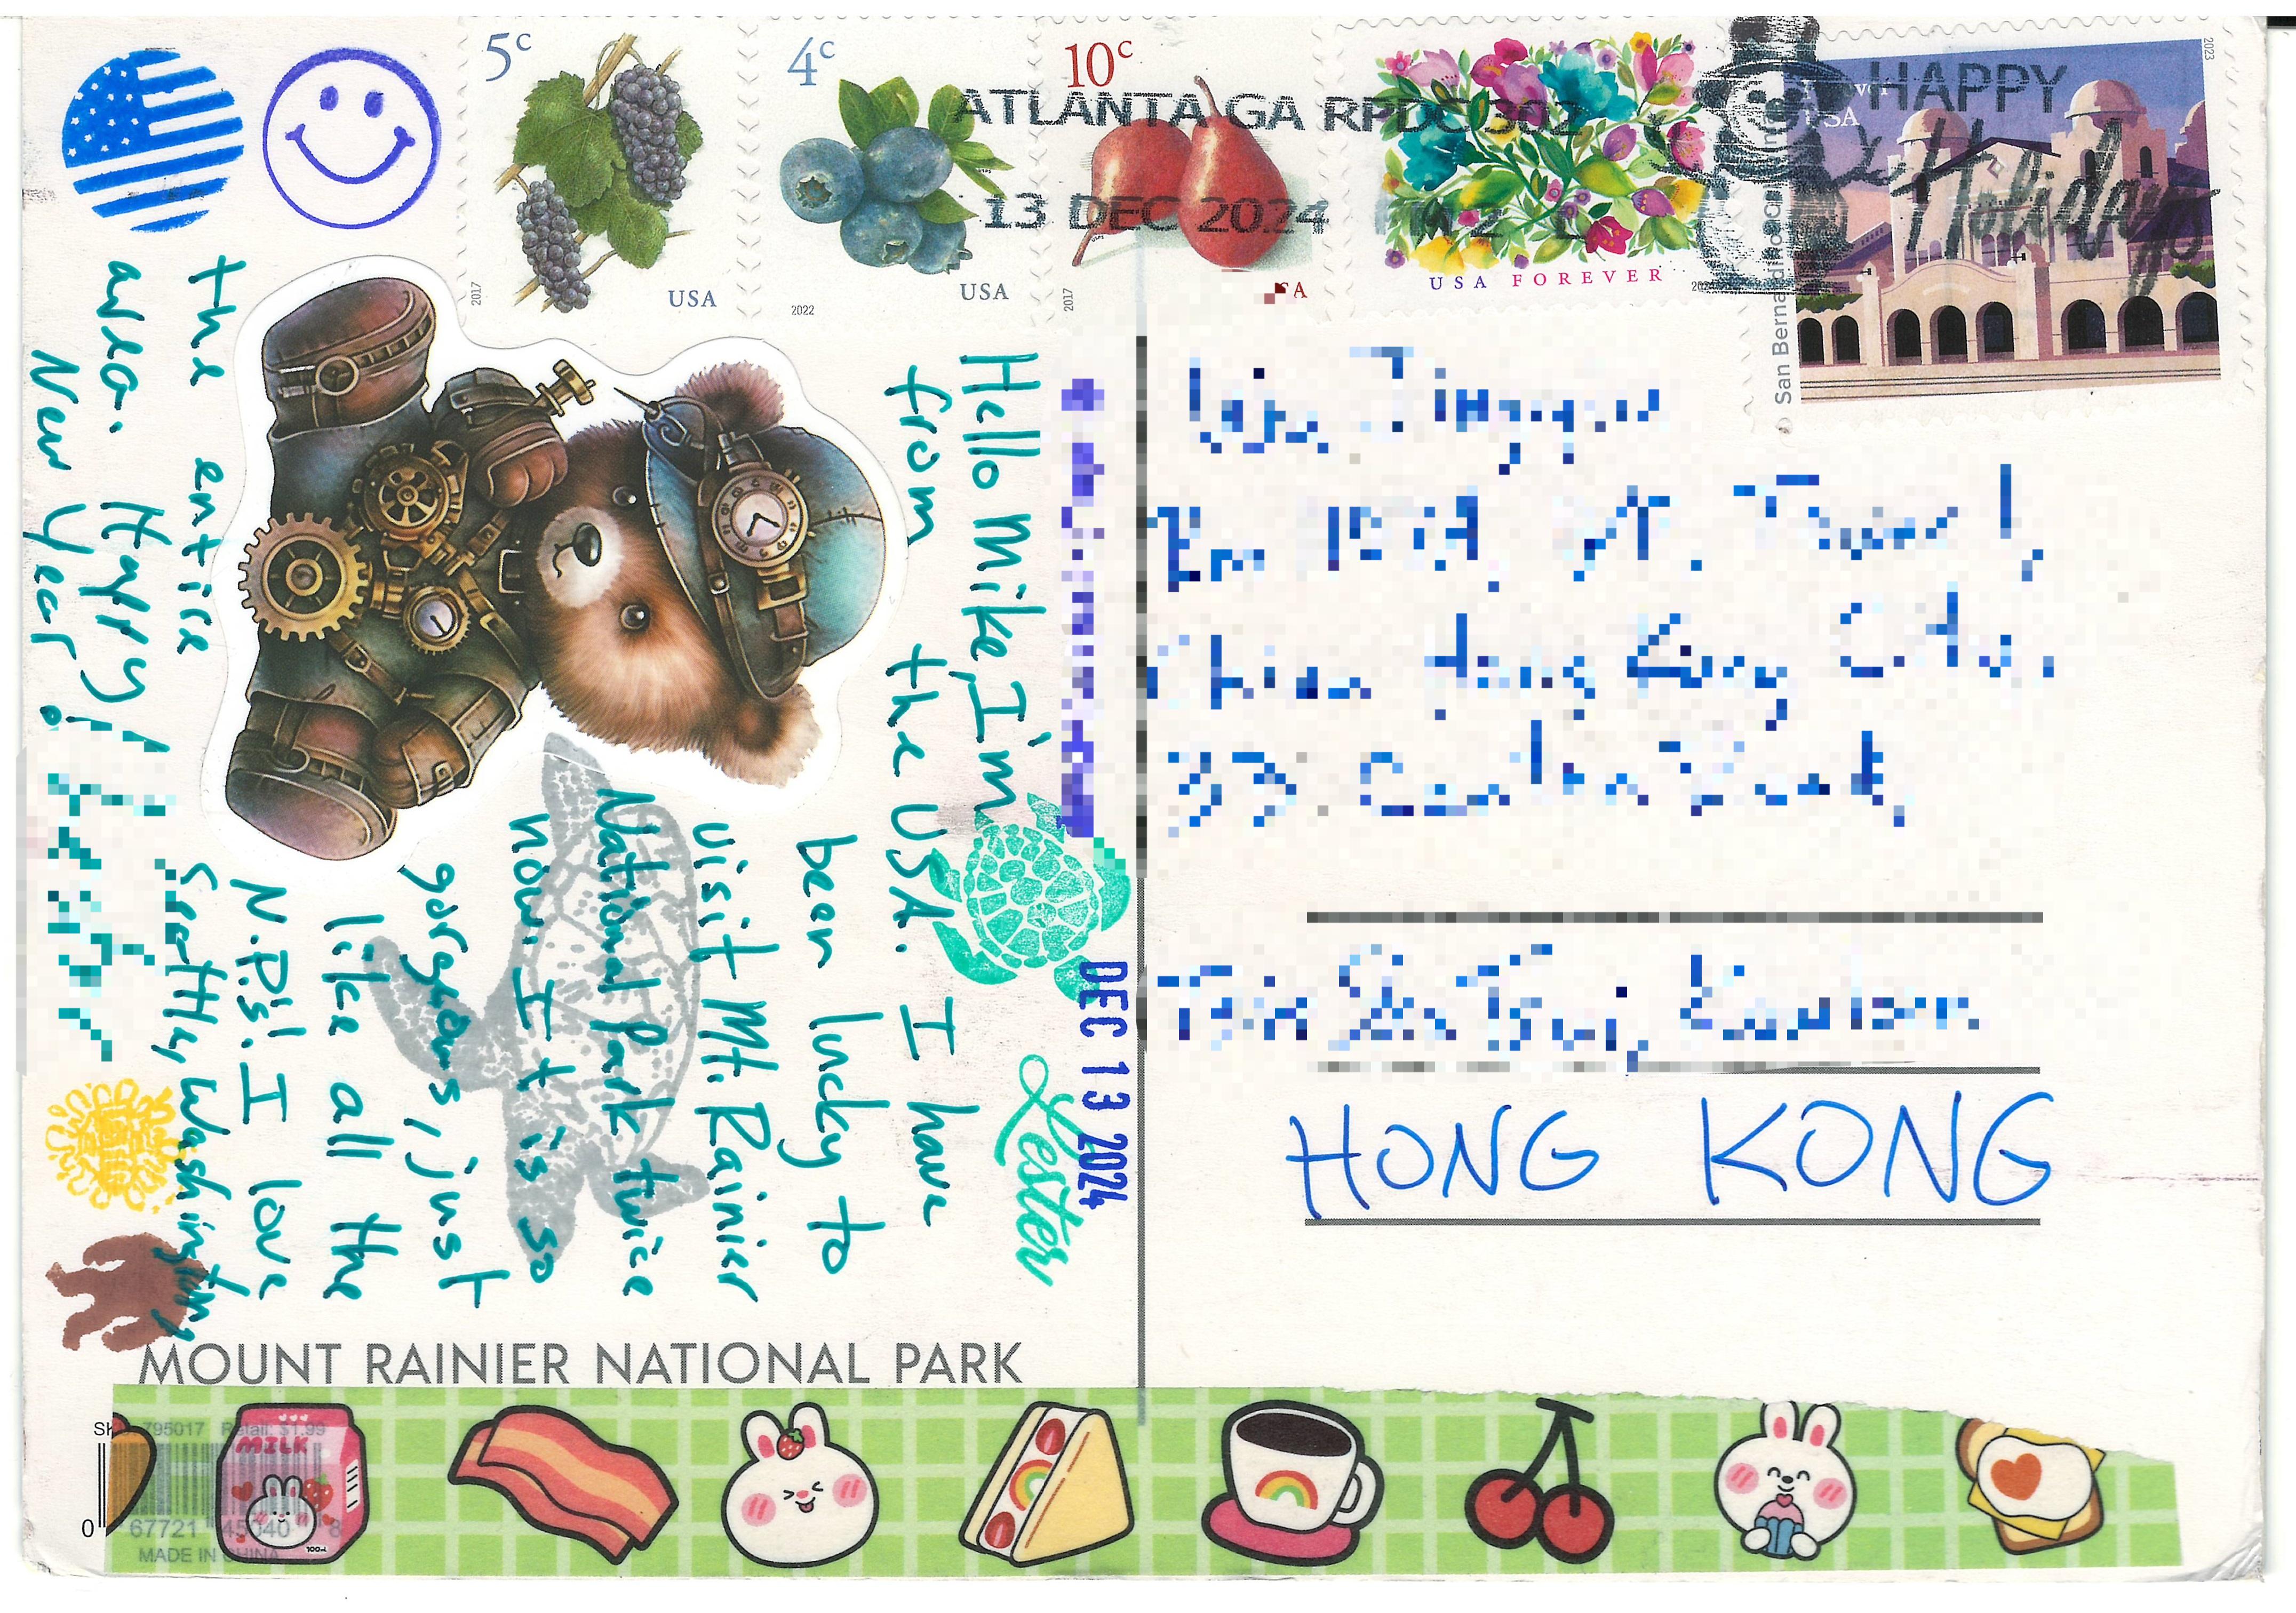 5c
2017
USA
4c
2022
USA
10c
2017
SA
ATLANTA GA RPDC 302
13 DEC 2024
USA FOREVER
HAPPY
Holidays
2023
USA
San Bernardino, California
Hello Mike, I'm
from the USA. I have
been lucky to
visit Mt. Rainier
National Park twice
now. It is so
gorgeous, just
like all the
N.P.s! I love
the entire Seattle, Washington,
area. Happy!
New Year!
DEC 13 2024
Lester
HONG KONG
MOUNT RAINIER NATIONAL PARK
795017 Retail: $1.99
MILK
0 67721 45040 8
MADE IN CHINA